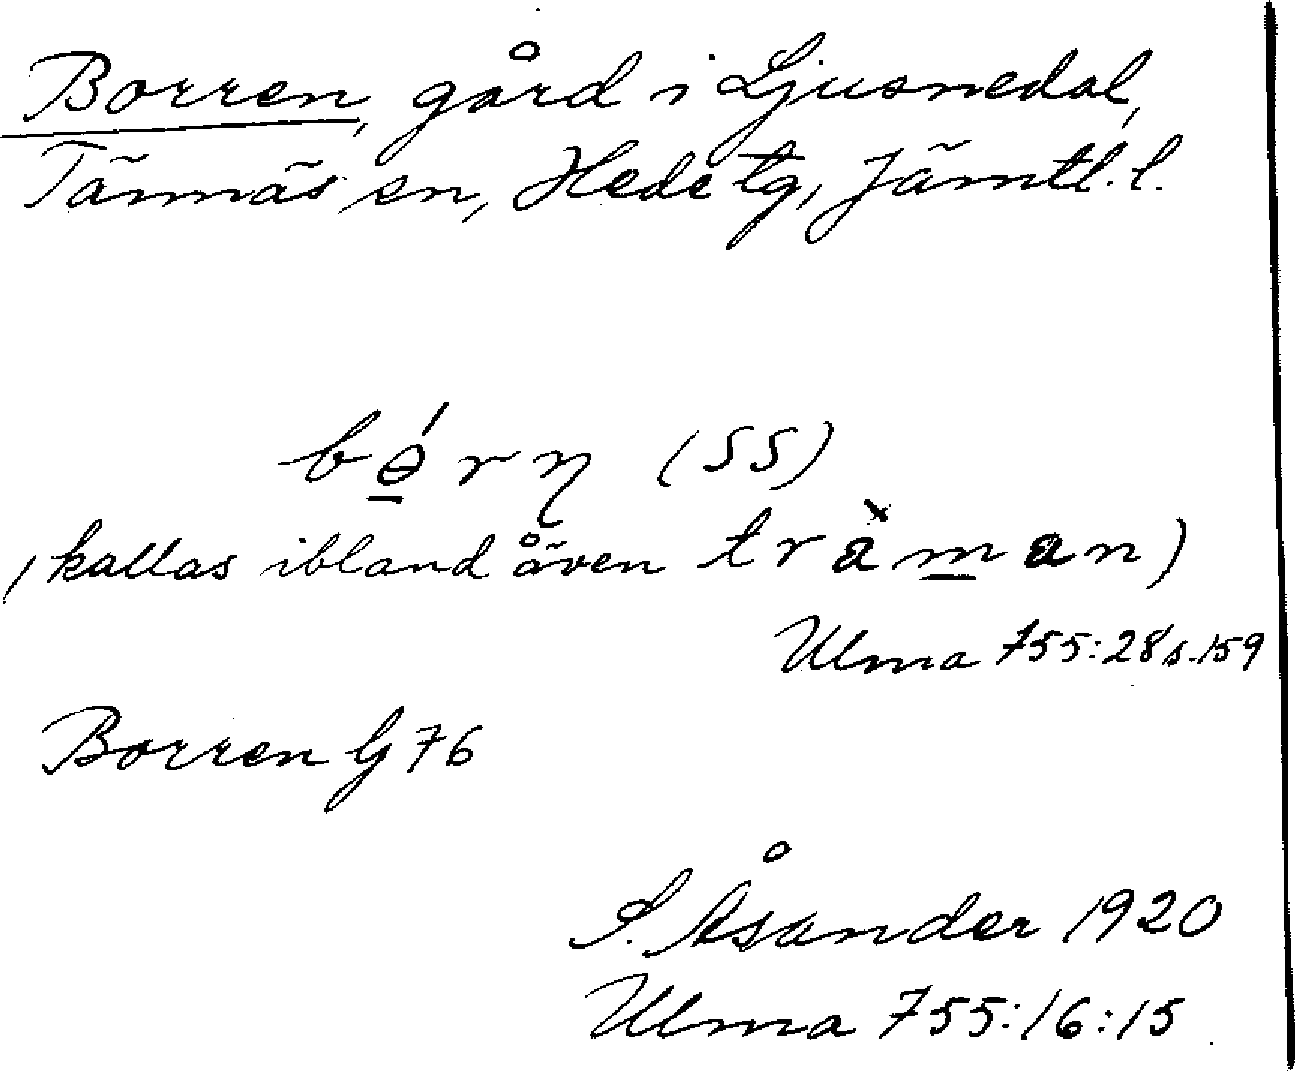 Borren, gård i Ljusnedal,
Tännäs sn, Hede tg, Jämtl. l.
bɵ́rn̥ (SS)
(kallas ibland även träman)
Ulma 755:28 s. 159
Borren G 76
S. Åsander 1920
Ulma 755:16:15